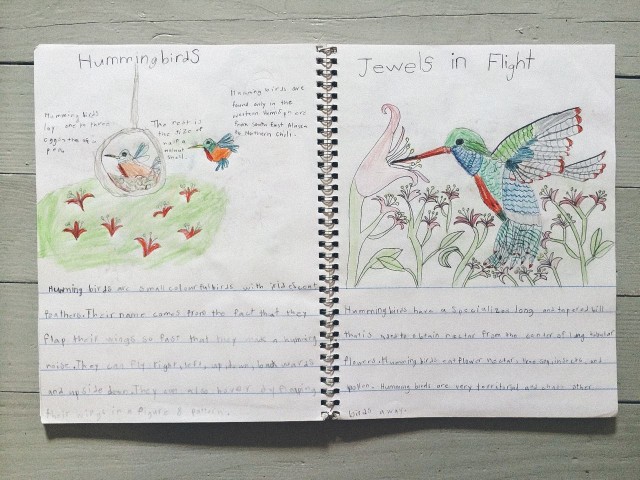 Hummingbirds
Humming birds
lay one to three
eggs the
pea.
The nest is
the size of
half a
walnut
small.
Humming birds are
found only in the
western hemf
from South East Alaska
to Northern Chili.
Humming birds are small colourful birds with iridescent
feathers. Their name comes from the fact that they
flap their wings so fast that they make a humming
noise. They can fly right, left, up, down, backwards
and upside down. They can also hover by flapping
their wings in a figure 8 pattern.
Jewels in Flight
Humming birds have a specialized long and tapered bill
that is used to obtain nectar from the center of long tubular
flowers. Humming birds eat flower nectar, tree sap, insects, and
pollen. Humming birds are very territorial and chase other
birds away.